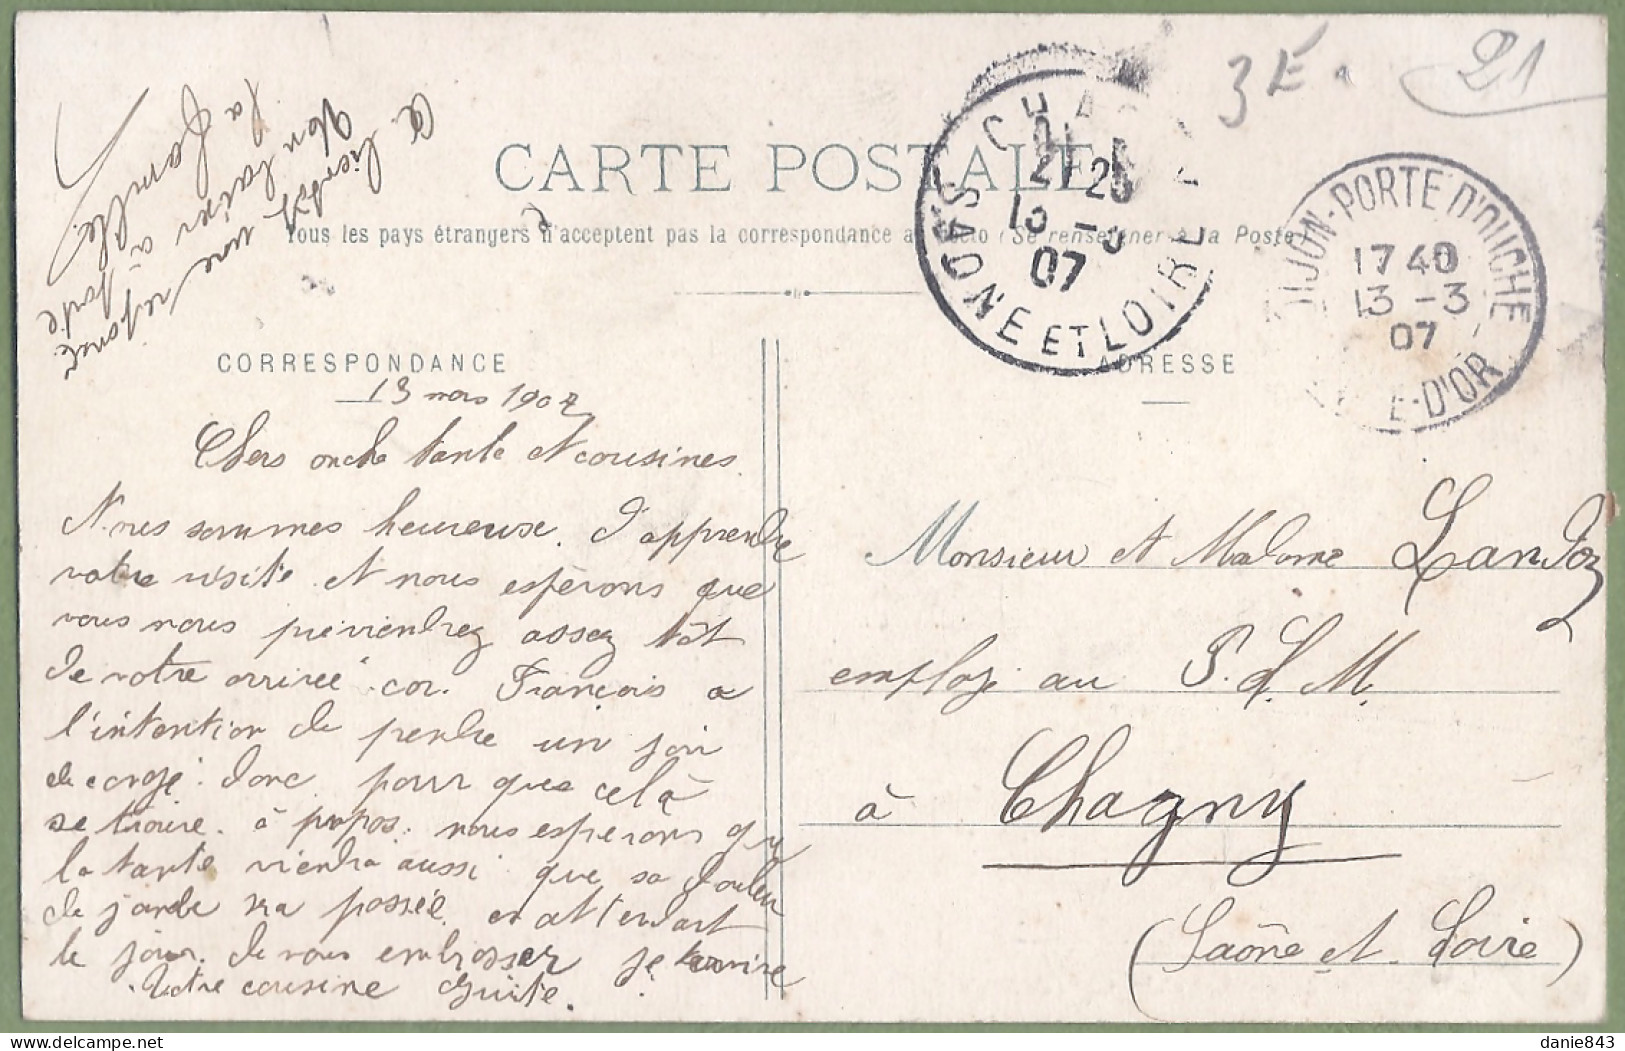 3E.
21
A bientôt une réponse
Mon baiser à toute
la famille.
CARTE POSTALE
Tous les pays étrangers n'acceptent pas la correspondance au recto (Se renseigner à la Poste)
CHAGNY
21 25
13 -3
07
SAONE ET LOIRE
DIJON-PORTE D'OUCHE
17 40
13 -3
07
COTE-D'OR
CORRESPONDANCE
ADRESSE
13 mars 1907
Chers oncle tante et cousines.
Nous sommes heureuse. d'apprendre
votre visite. et nous espèrons que
vous nous previendrez assez tôt
de votre arrivée. car. François a
l'intention de perdre un jour
de congé. donc. pour que celà
se trouve. à propos. nous esperons que
la tante viendra aussi que sa douleur
de jambe sera passée. en attendant
le jour. de vous embrasser je
Votre cousine
Monsieur et Madame Landoz
employé au P. L. M.
à Chagny
(Saône et Loire)
danie843